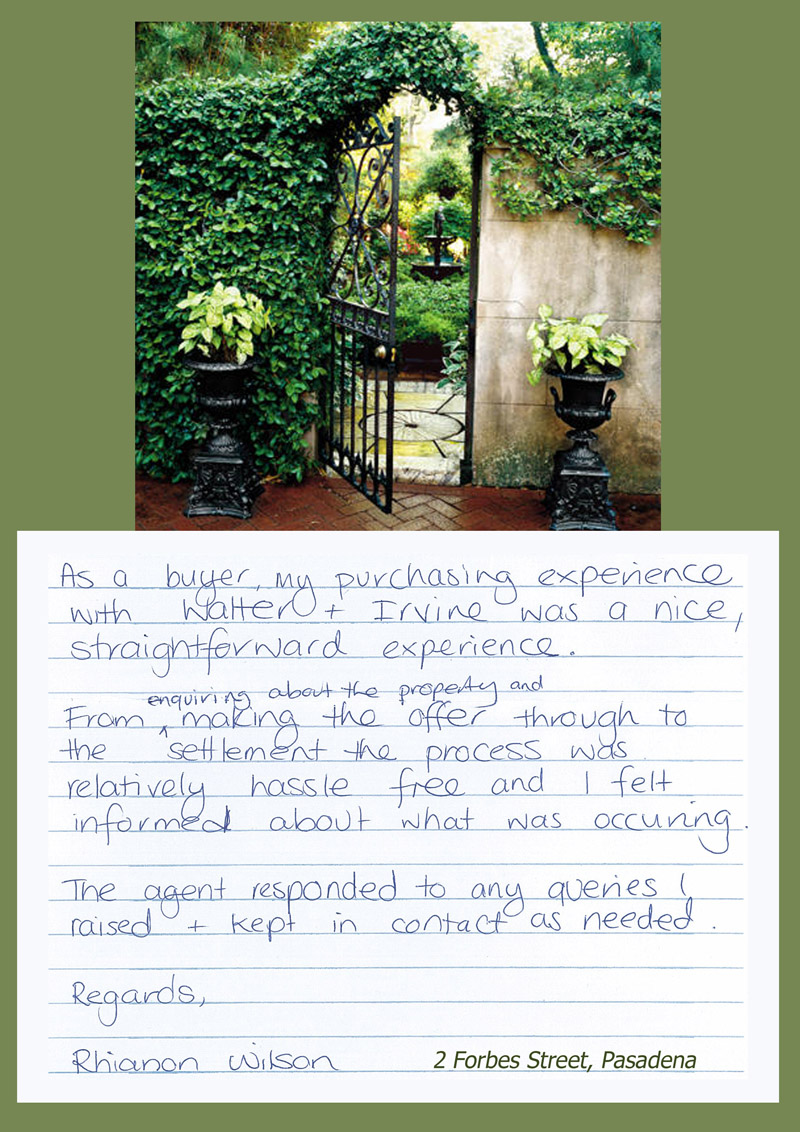 As a buyer, my purchasing experience
with Walter + Irvine was a nice,
straightforward experience.
enquiring about the property and
From ^ making the offer through to
the settlement the process was
relatively hassle free and I felt
informed about what was occuring.
The agent responded to any queries I
raised + kept in contact as needed.
Regards,
Rhianon Wilson
2 Forbes Street, Pasadena